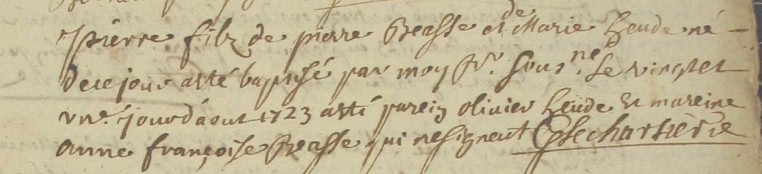 Pierre filz de pierre Beasse et de Marie heude né
de ce jour até baptisé par moy Pr. sous.ne le vingt et
vn.e jour daout 1723 até parein olivier heude et mareine
anne françoise Beasse qui ne signent